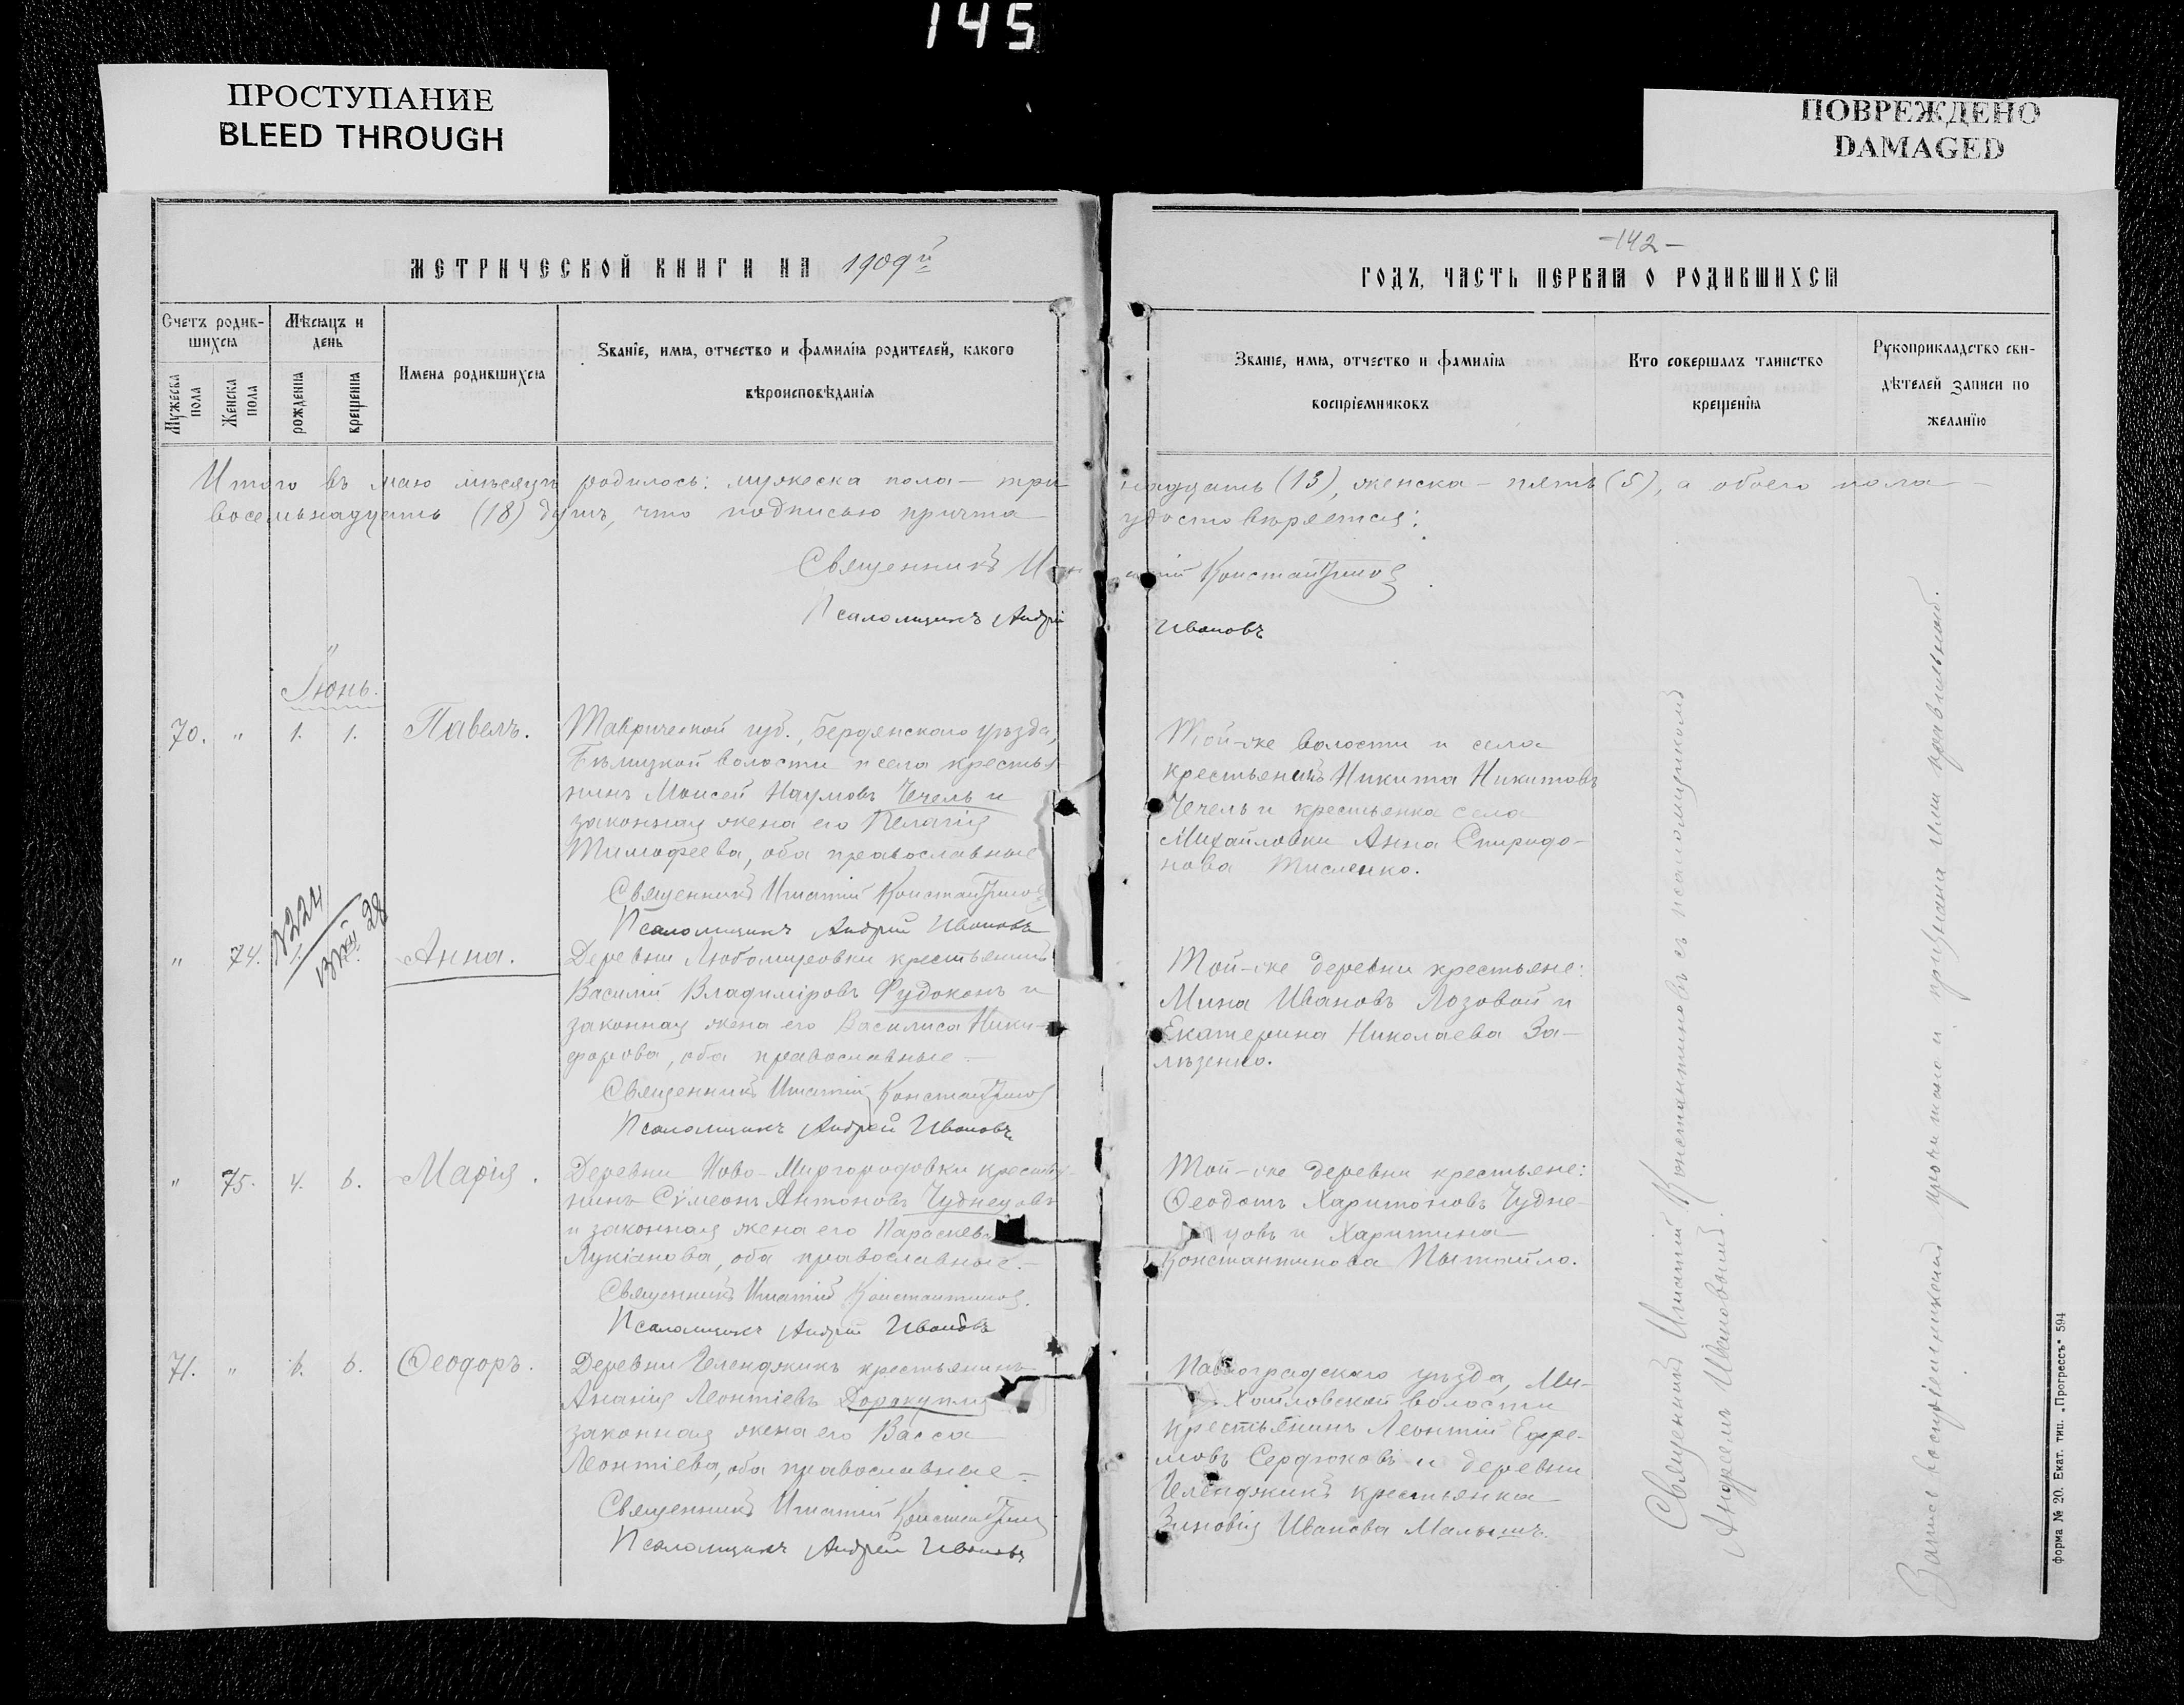 145
ПРОСТУПАНИЕ
BLEED THROUGH
ПОВРЕЖДЕНО
DAMAGED
МЕТРИЧЕСКОЙ КНИГИ НА 1909й
Счетъ родив-
шихся
Мѣсяцъ и
день
Мужеска
пола
Женска
пола
рожденія
крещенія
Имена родившихся
Званіе, имя, отчество и фамилія родителей, какого
вѣроисповѣданія
-142-
ГОДЪ, ЧАСТЬ ПЕРВАЯ О РОДИВШИХСЯ
Званіе, имя, отчество и фамилія
воспріемниковъ
Кто совершалъ таинство
крещенія
Рукоприкладство сви-
дѣтелей записи по
желанію
Итого въ маѣ мѣсяцѣ родилось: мужеска пола — три надцать (13), женска — пять (5), а обоего пола —
восемнадцать (18) душъ, что подписью причта удостовѣряется:
Священникъ Игнатій Константиновъ
Псаломщикъ Андрей Ивановъ
Іюнь.
70. " 1. 1. Павелъ.
Таврической губ., Бердянскаго уѣзда,
волости и села крестья-
нинъ Моисей Наумовъ Чечель и
законная жена его Пелагія
Тимофеева, оба православные
Священникъ Игнатій Константиновъ
Псаломщикъ Андрей Ивановъ
Той-же волости и села
крестьянинъ Никита Никитовъ
Чечель и крестьянка села
Михайловки Анна Спиридо-
нова Тисленко.
№224
28
" 74. 1. Анна.
Деревни Любомировки крестьянинъ
Василій Владиміровъ Фудоконъ и
законная жена его Василиса Ники-
форова, оба православные.—
Священникъ Игнатій Константиновъ
Псаломщикъ Андрей Ивановъ
Той-же деревни крестьяне:
Мина Ивановъ Лозовой и
Екатерина Николаева За-
лѣзенко.
" 75. 4. 6. Марія.
Деревни Ново-Миргородовки крестья-
нинъ Сѵмеонъ Антоновъ Чуднецовъ
и законная жена его Параскева
Лукіанова, оба православные.—
Священникъ Игнатій Константиновъ.
Псаломщикъ Андрей Ивановъ
Той-же деревни крестьяне:
Ѳеодотъ Харитоновъ Чудне-
цовъ и Харитина
Константинова
71. " 6. 6. Ѳеодоръ.
Деревни Геленджикъ крестьянинъ
Ананія Леонтіевъ
законная жена его Васса
Леонтіева, оба православные.—
Священникъ Игнатій Константиновъ
Псаломщикъ Андрей Ивановъ
Павлоградскаго уѣзда, Ми-
хайловской волости
крестьянинъ Леонтій Ефре-
мовъ Сердюковъ и деревни
Геленджикъ крестьянка
Зиновія Иванова Малышъ.
Священникъ Игнатій Константиновъ съ псаломщикомъ
Андреемъ Ивановымъ.
Запись воспріемниками прочитана и признана ими правильной.
Форма № 20. Екат. тип. „Прогрессъ" 594